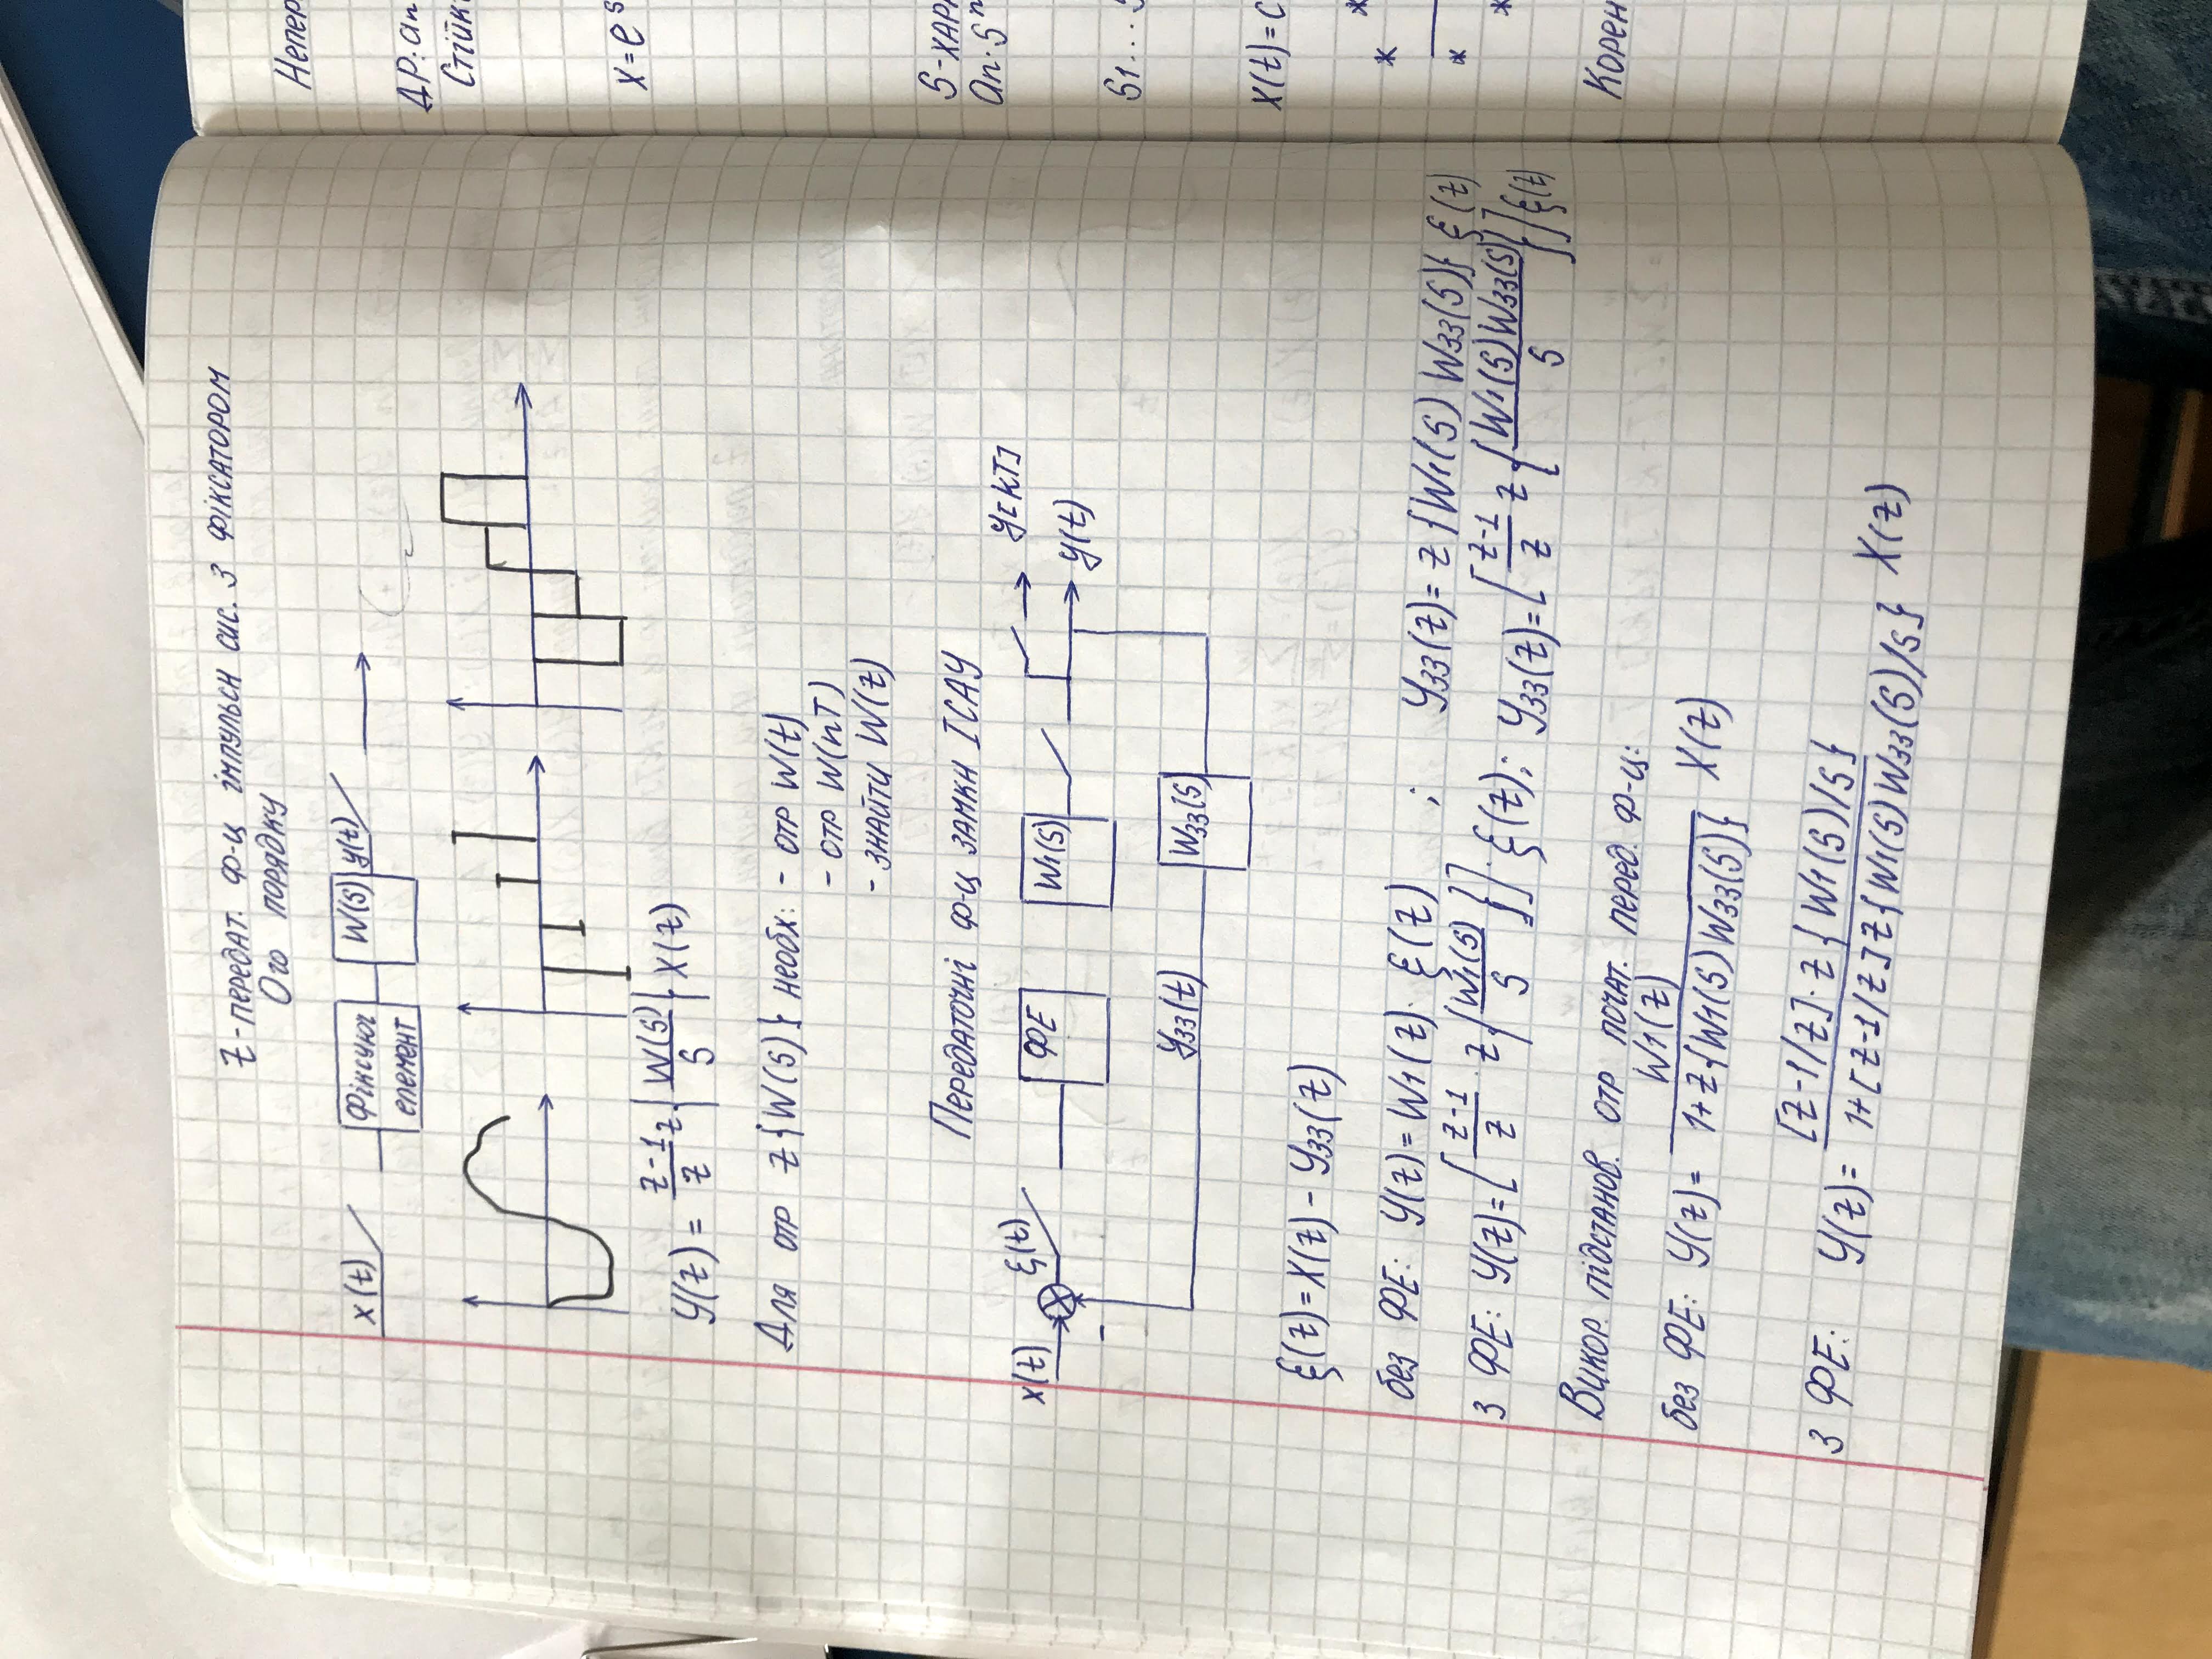 Z-передат. ф-ц імпульсн сис. з фіксатором
0го порядку
x(t) Фіксуюч елемент W(S) y(t)
Y(z) = \frac{z-1}{z} z \left\{ \frac{W(S)}{S} \right\} X(z)
Для отр z{W(S)} необх: - отр W(t)
- отр W(nT)
- знайти W(z)
Передаточні ф-ц замкн ІСАУ
y[кT]
x(t) ξ(t) ФЕ W1(S) y(t)
-
Yзз(t) Wзз(S)
ξ(z) = X(z) - Yзз(z)
без ФЕ: Y(z) = W1(z) · ξ(z) ; Yзз(z) = z{W1(S) Wзз(S)} ξ(z)
з ФЕ: Y(z) = [\frac{z-1}{z} · z{\frac{W1(S)}{S}}] · ξ(z); Yзз(z) = [\frac{z-1}{z} z{\frac{W1(S)Wзз(S)}{S}}] ξ(z)
Викор. підстанов. отр почат. перед. ф-ц:
без ФЕ: Y(z) = \frac{W1(z)}{1+z{W1(S)Wзз(S)}} X(z)
з ФЕ: Y(z) = \frac{[z-1/z] · z{W1(S)/S}}{1+[z-1/z] z{W1(S)Wзз(S)/S}} X(z)
Непер
ДР: an
Стійк
x = e^s
S-хара
an·S^n
S1...S
X(t) = C
* *
*
*
Корен